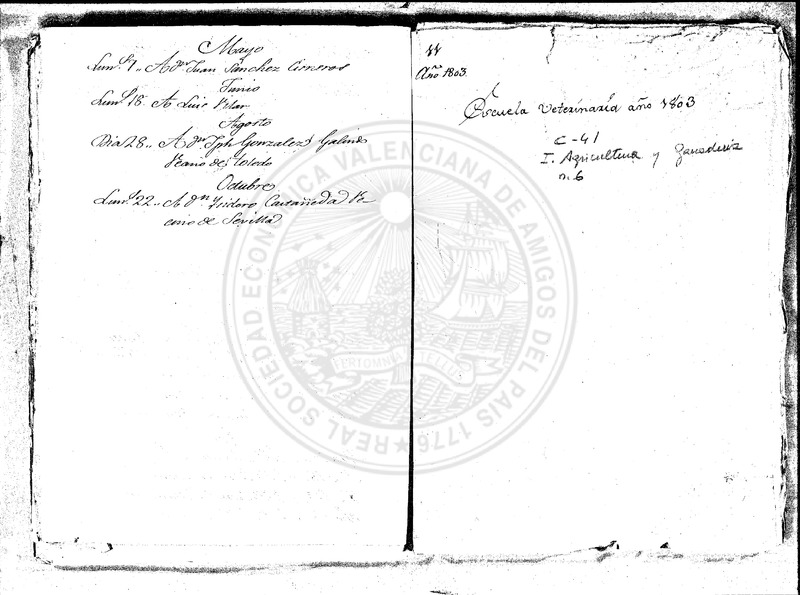 Mayo
Lun.s 7.. A Dn. Juan Sánchez Cisneros
Junio
Lun.s 18. A Luis Vilar
Agosto
Dia 28.. A Dn. Jph Gonzalez Galindo
Vecino de Toledo
Octubre
Lun.s 22.. A Dn. Isidoro Castañeda Ve-
cino de Sevilla
Año 1803.
Escuela Veterinaria año 1803
C-41
I. Agricultura y Ganaderia
n.6
REAL SOCIEDAD ECONOMICA VALENCIANA DE AMIGOS DEL PAIS 1776